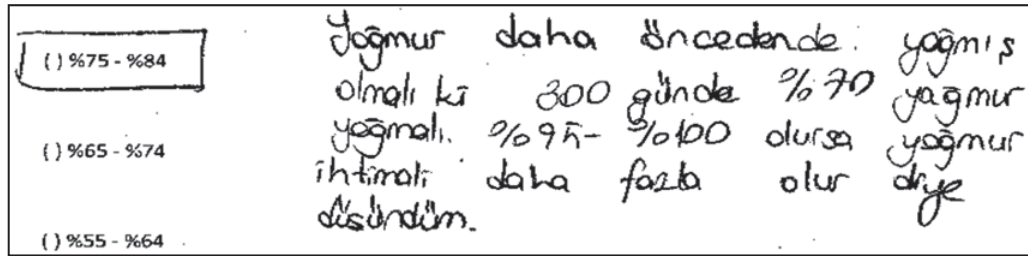 ( ) %75 - %84
( ) %65 - %74
( ) %55 - %64
Yoğmur daha öncedende yağmış
olmalı ki 300 günde %70 yağmur
yağmalı. %95- %100 olursa yağmur
ihtimali daha fazla olur diye
düşündüm.